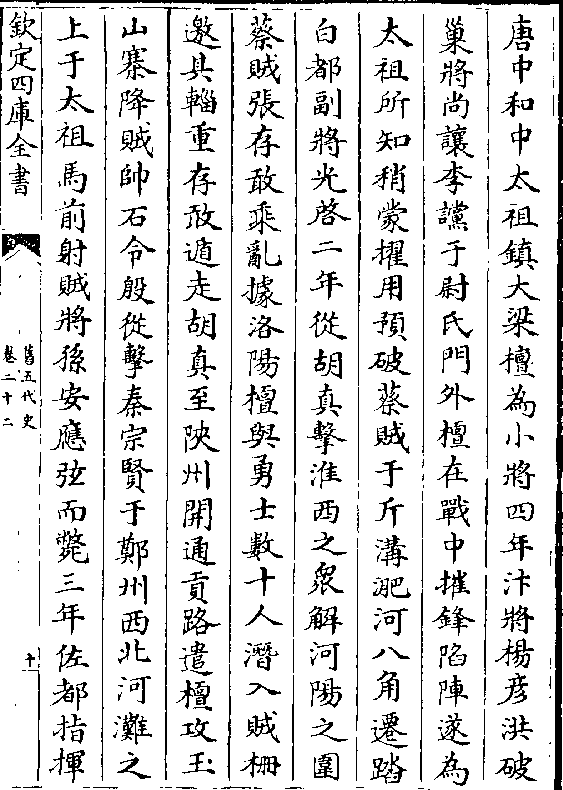 唐中和中太祖鎮大梁檀為小將四年汴將楊彦洪破
巢將尚讓李讜于尉氏門外檀在戰中摧鋒陷陣遂為
太祖所知稍蒙擢用預破蔡賊于斤溝淝河八角遷踏
白都副將光啓二年從胡真擊淮西之衆解河陽之圍
蔡賊張存敢乘亂據洛陽檀與勇士數十人潛入賊柵
邀其輜重存敢遁走胡真至陝州開通貢路遣檀攻玉
山寨降賊帥石令殷從擊秦宗賢于鄭州西北河灘之
上于太祖馬前射賊將孫安應弦而斃三年佐都指揮
欽定四庫全書
舊五代史
卷二十二
十一